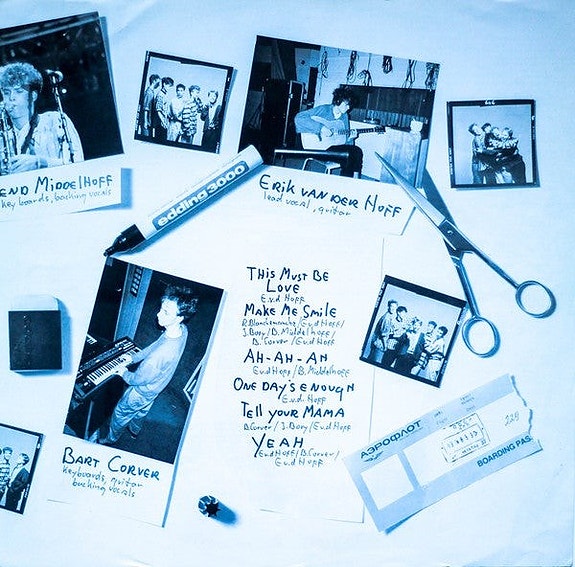 END MIDDELHOFF
keyboards, backing vocals
edding 3000
ERIK VAN DER HOFF
lead vocal, guitar
THIS MUST BE
LOVE
E.v.d Hoff
MAKE ME SMILE
E.v.d Hoff/
J.Booy/B.Middelhoff/
B.Corver/E.v.d Hoff
AH-AH-AH
E.v.d Hoff/B.Middelhoff
ONE DAY'S ENOUGH
E.v.d. Hoff
TELL YOUR MAMA
B.Corver/J.Booy/E.v.d Hoff
YEAH
E.v.d Hoff/B.Corver/
E.v.d Hoff
BART CORVER
keyboards, guitar
backing vocals
АЭРОФЛОТ
22B
BOARDING PAS